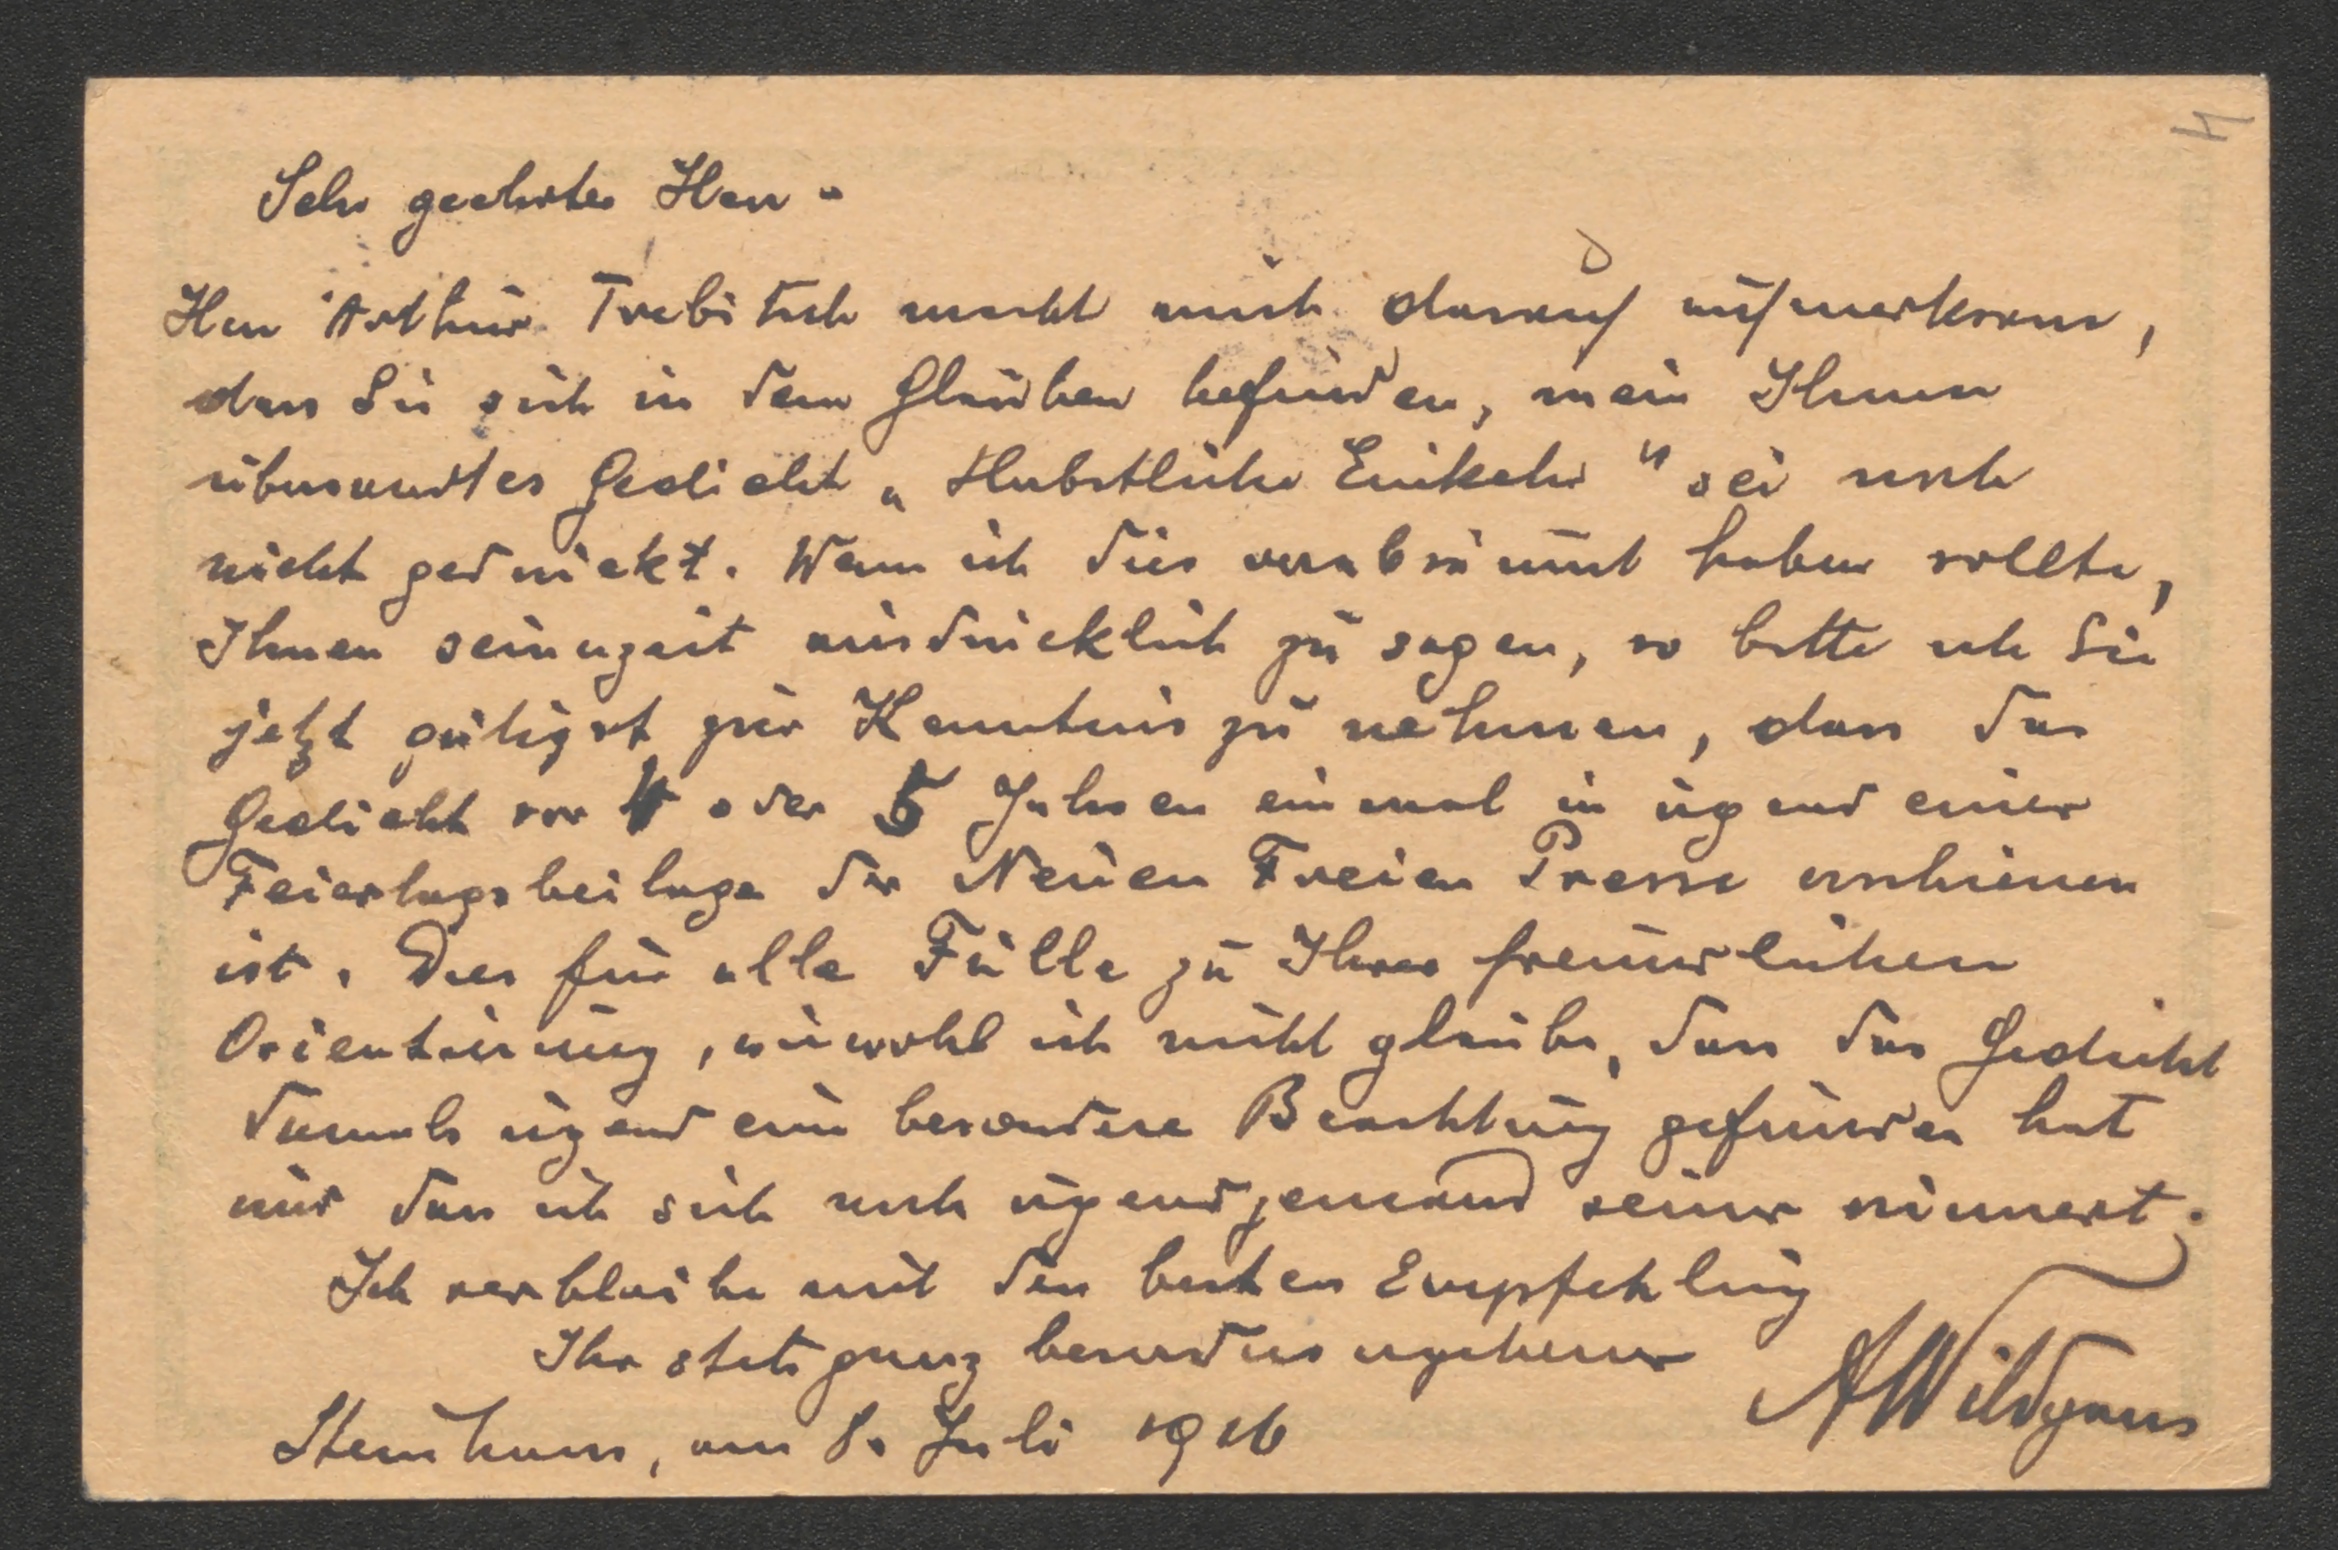 4
Sehr geehrter Herr –
Herr Arthur Trebitsch macht mich darauf aufmerksam,
dass Sie sich in dem Glauben befinden, mein Ihnen
übersandtes Gedicht „Herbstliche Einkehr" sei noch
nicht gedruckt. Wenn ich dies verabsäumt haben sollte,
Ihnen seinerzeit ausdrücklich zu sagen, so bitte ich Sie
jetzt gütigst zur Kenntnis zu nehmen, dass das
Gedicht vor 4 oder 5 Jahren einmal in irgend einer
Feiertagsbeilage der Neuen Freien Presse erschienen
ist. Dies für alle Fälle zu Ihrer freundlichen
Orientierung, wiewohl ich nicht glaube, dass das Gedicht
damals irgend eine besondere Beachtung gefunden hat
und dass sich noch irgend jemand seiner erinnert.
Ich verbleibe mit den besten Empfehlung
Ihr stets ganz besonders ergebener
AWildgans
am 8. Juli 1916